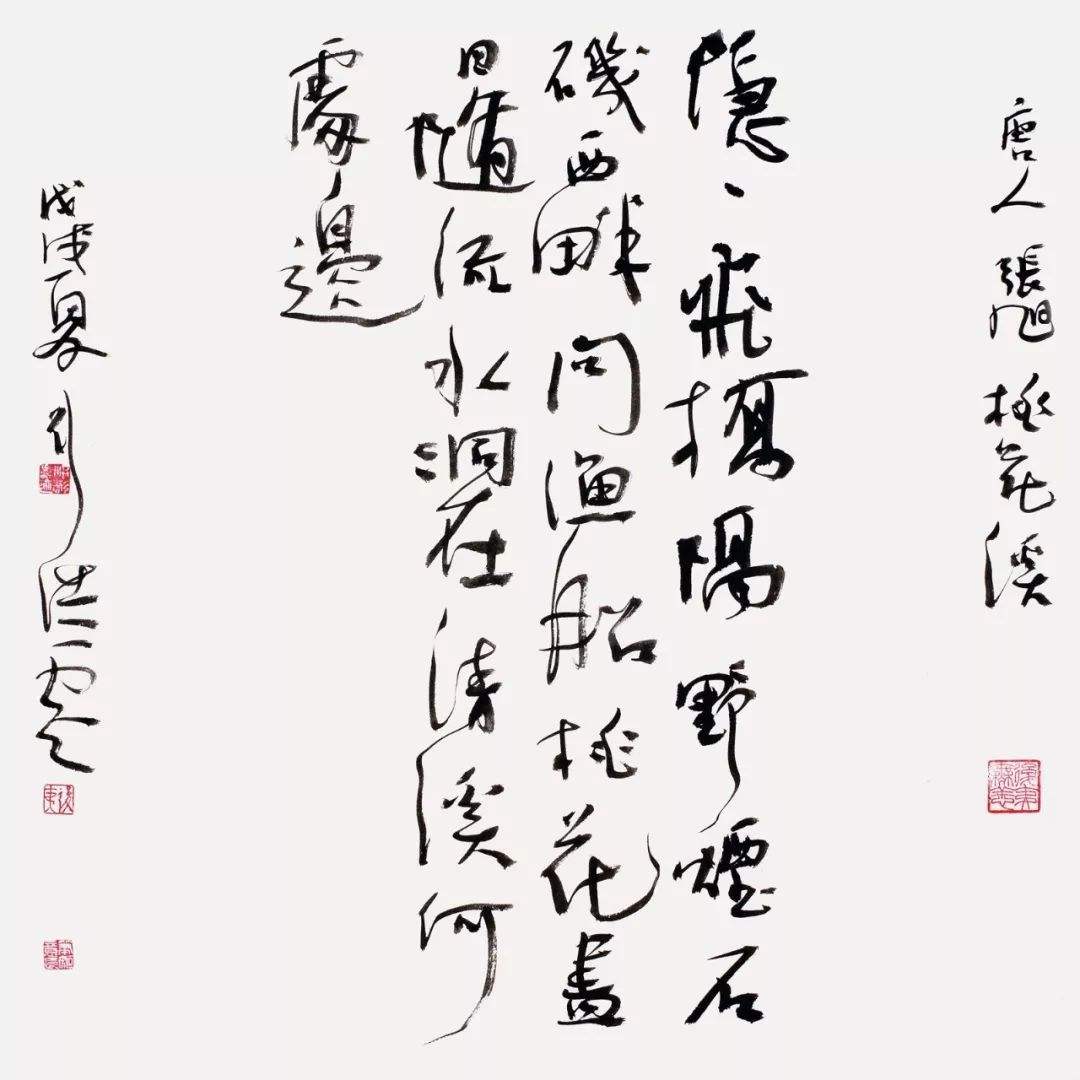 唐人張旭桃花溪
隱、飛橋隔野煙石
磯西畔問漁船桃花盡
日隨流水洞在清溪何
處邊
戊戌夏